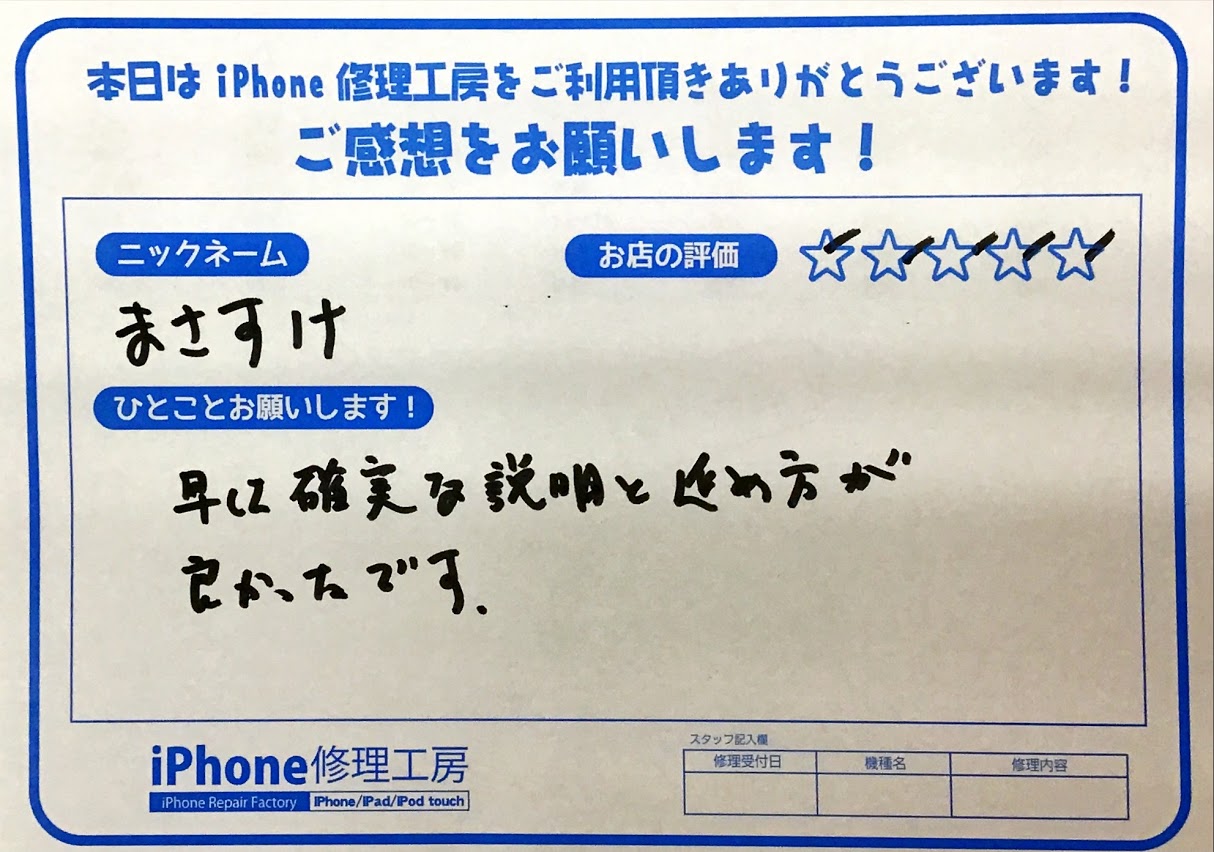 本日は iPhone 修理工房をご利用頂きありがとうございます！
ご感想をお願いします！
ニックネーム
お店の評価
まさすけ
ひとことお願いします！
早に確実な説明と進め方が
良かったです.
iPhone修理工房
iPhone Repair Factory iPhone/iPad/iPod touch
スタッフ記入欄
修理受付日 機種名 修理内容